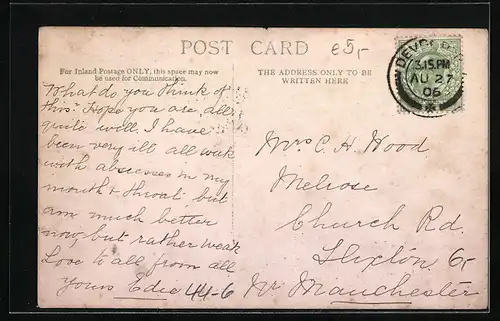 POST CARD
e5,-
For Inland Postage ONLY, this space may now
be used for Communication.
THE ADDRESS ONLY TO BE
WRITTEN HERE
3.15.PM
AU 27
06
What do you think of
this? Hope you are all
quite well. I have
been very ill all week
with abscesses in my
mouth & throat but
am much better
now, but rather weak
Love to all from all
yours Edie 44-6
Mrs C. H. Wood
Melrose
Church Rd.
Nr. Manchester